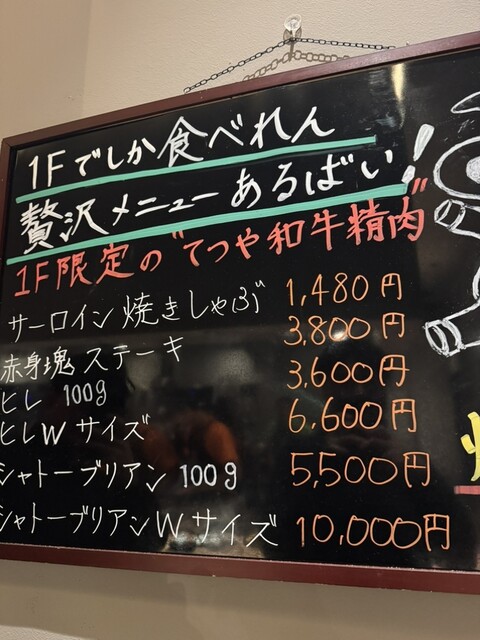 1Fでしか食べれん
贅沢メニューあるばい!
1F限定の"てつや和牛精肉"
サーロイン焼きしゃぶ 1,480円
赤身塊ステーキ 3,800円
ヒレ 100g 3,600円
ヒレWサイズ 6,600円
シャトーブリアン 100g 5,500円
シャトーブリアンWサイズ 10,000円